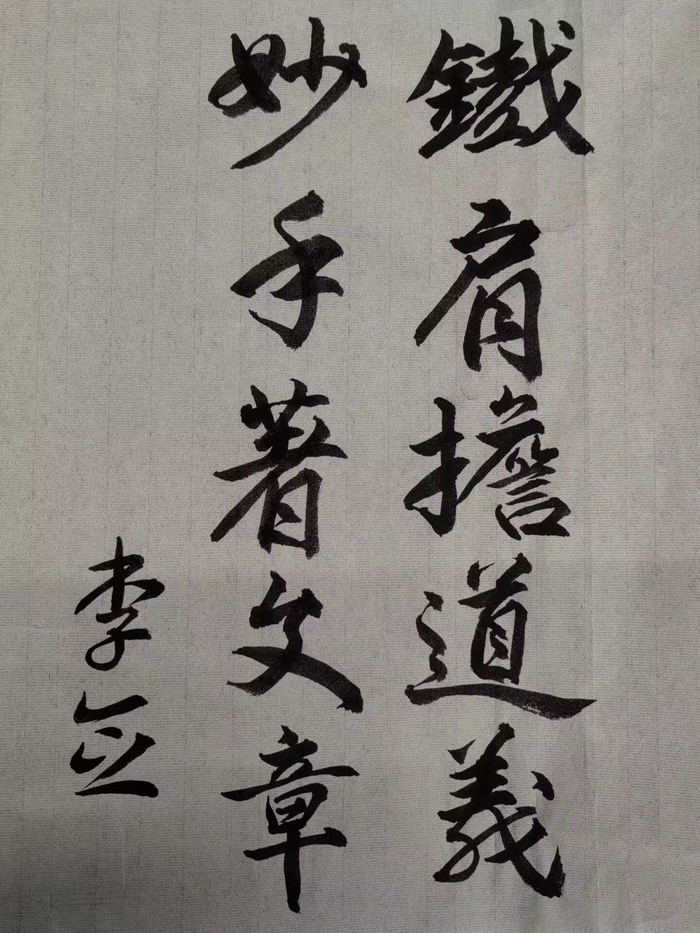 鐵肩擔道義
妙手著文章
李